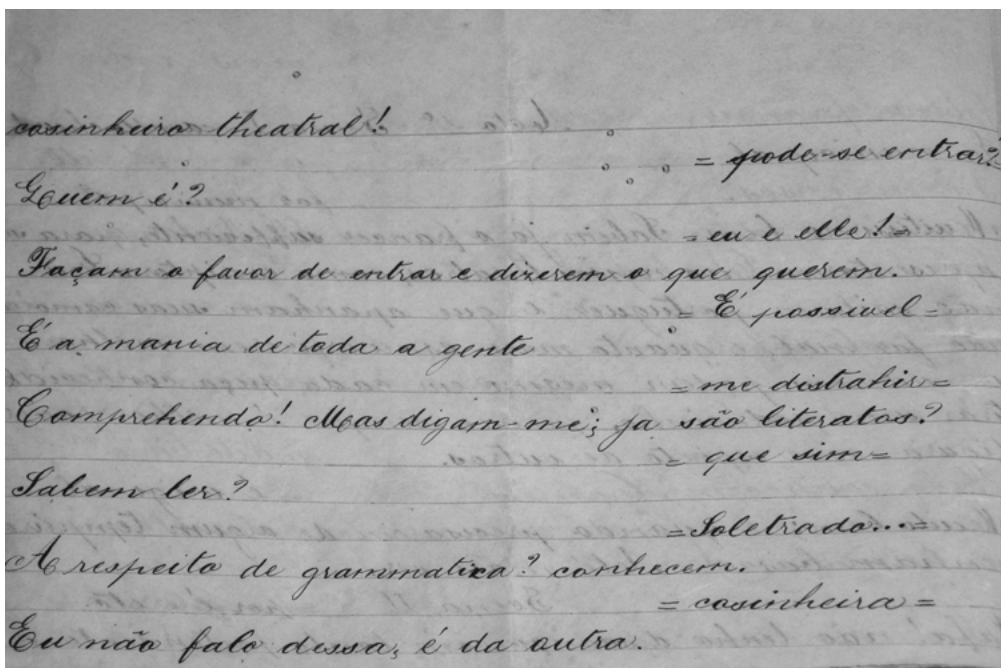 cosinheiro theatral!
= pode-se entrar?=
Quem é?
= eu e elle!=
Façam o favor de entrar e dizerem o que querem.
= É possivel=
É a mania de toda a gente
= me distrahir=
Comprehendo! Mas digam-me; ja são literatos?
= que sim=
Sabem ler?
= Soletrado...=
A respeito de grammatica? conhecem.
= cosinheira =
Eu não falo dessa, é da outra.